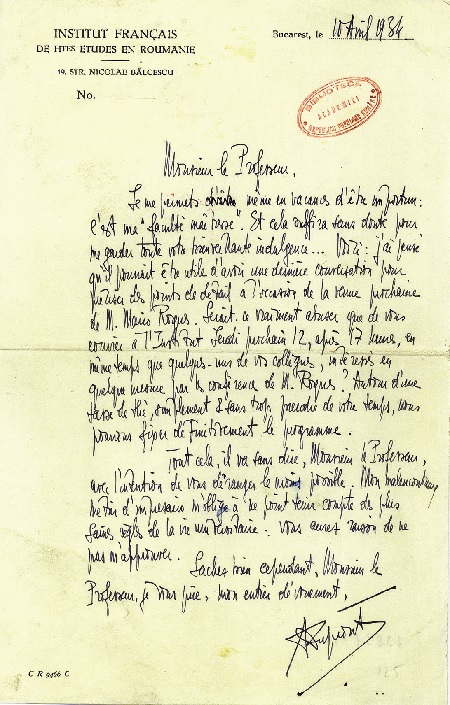 INSTITUT FRANÇAIS
DE HTES ETUDES EN ROUMANIE
19, STR. NICOLAE BĂLCESCU
No.
Bucarest, le 10 Avril 1934
BIBLIOTECA
ACADEMIEI
REPUBLICII POPULARE ROMÂNE
Monsieur le Professeur,
Je me permets même en vacances d'être importun:
c'est ma "faculté maîtresse". Et cela suffira sans doute pour
me garder toute votre bienveillante indulgence... Voici: j'ai pensé
qu'il pourrait être utile d'avoir une dernière conversation pour
préciser des points de détail à l'occasion de la venue prochaine
de M. Mario Roques. Serait-ce vraiment abuser que de vous
convier à l'Institut Jeudi prochain 12, après 17 heures, en
même temps que quelques-uns de vos collègues, intéressés en
quelque mesure par la conférence de M. Roques? Autour d'une
tasse de thé, simplement & sans trop prendre de votre temps, nous
pourrions fixer définitivement le programme.
Tout cela, il va sans dire, Monsieur le Professeur,
avec l'intention de vous déranger le moins possible. Mon malencontreux
métier d'impresario m'oblige à ne point tenir compte des plus
saines règles de la vie universitaire. Vous aurez raison de ne
pas m'approuver.
Sachez bien cependant, Monsieur le
Professeur, je vous prie, mon entier dévouement,
ADupront
C R 9466 C
125